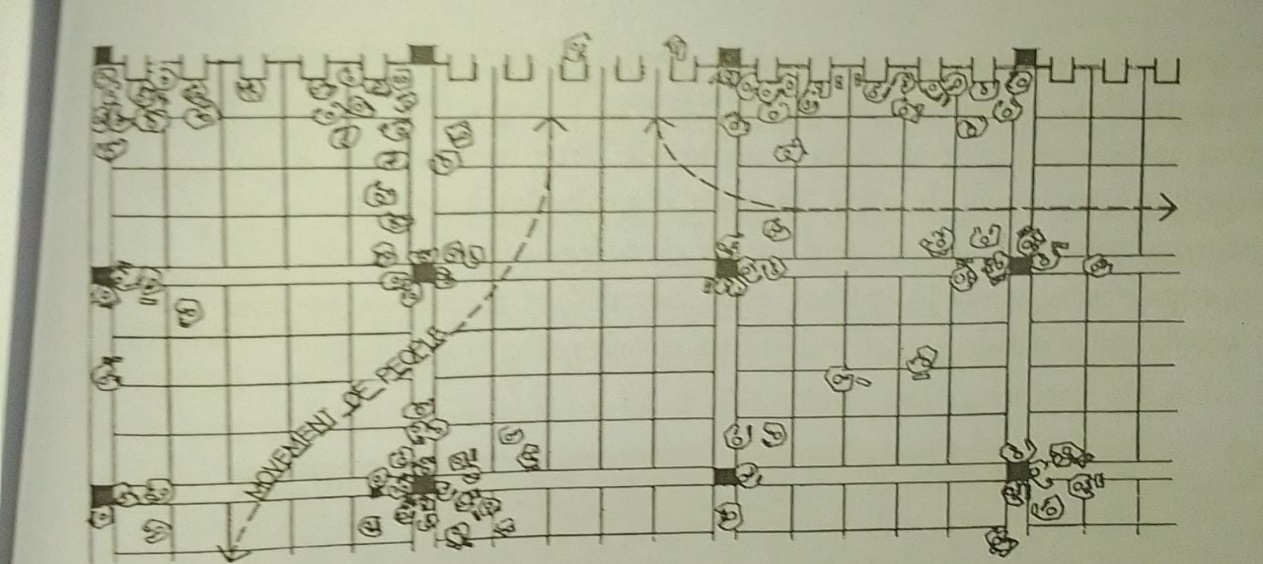 MOVEMENT OF PEOPLE